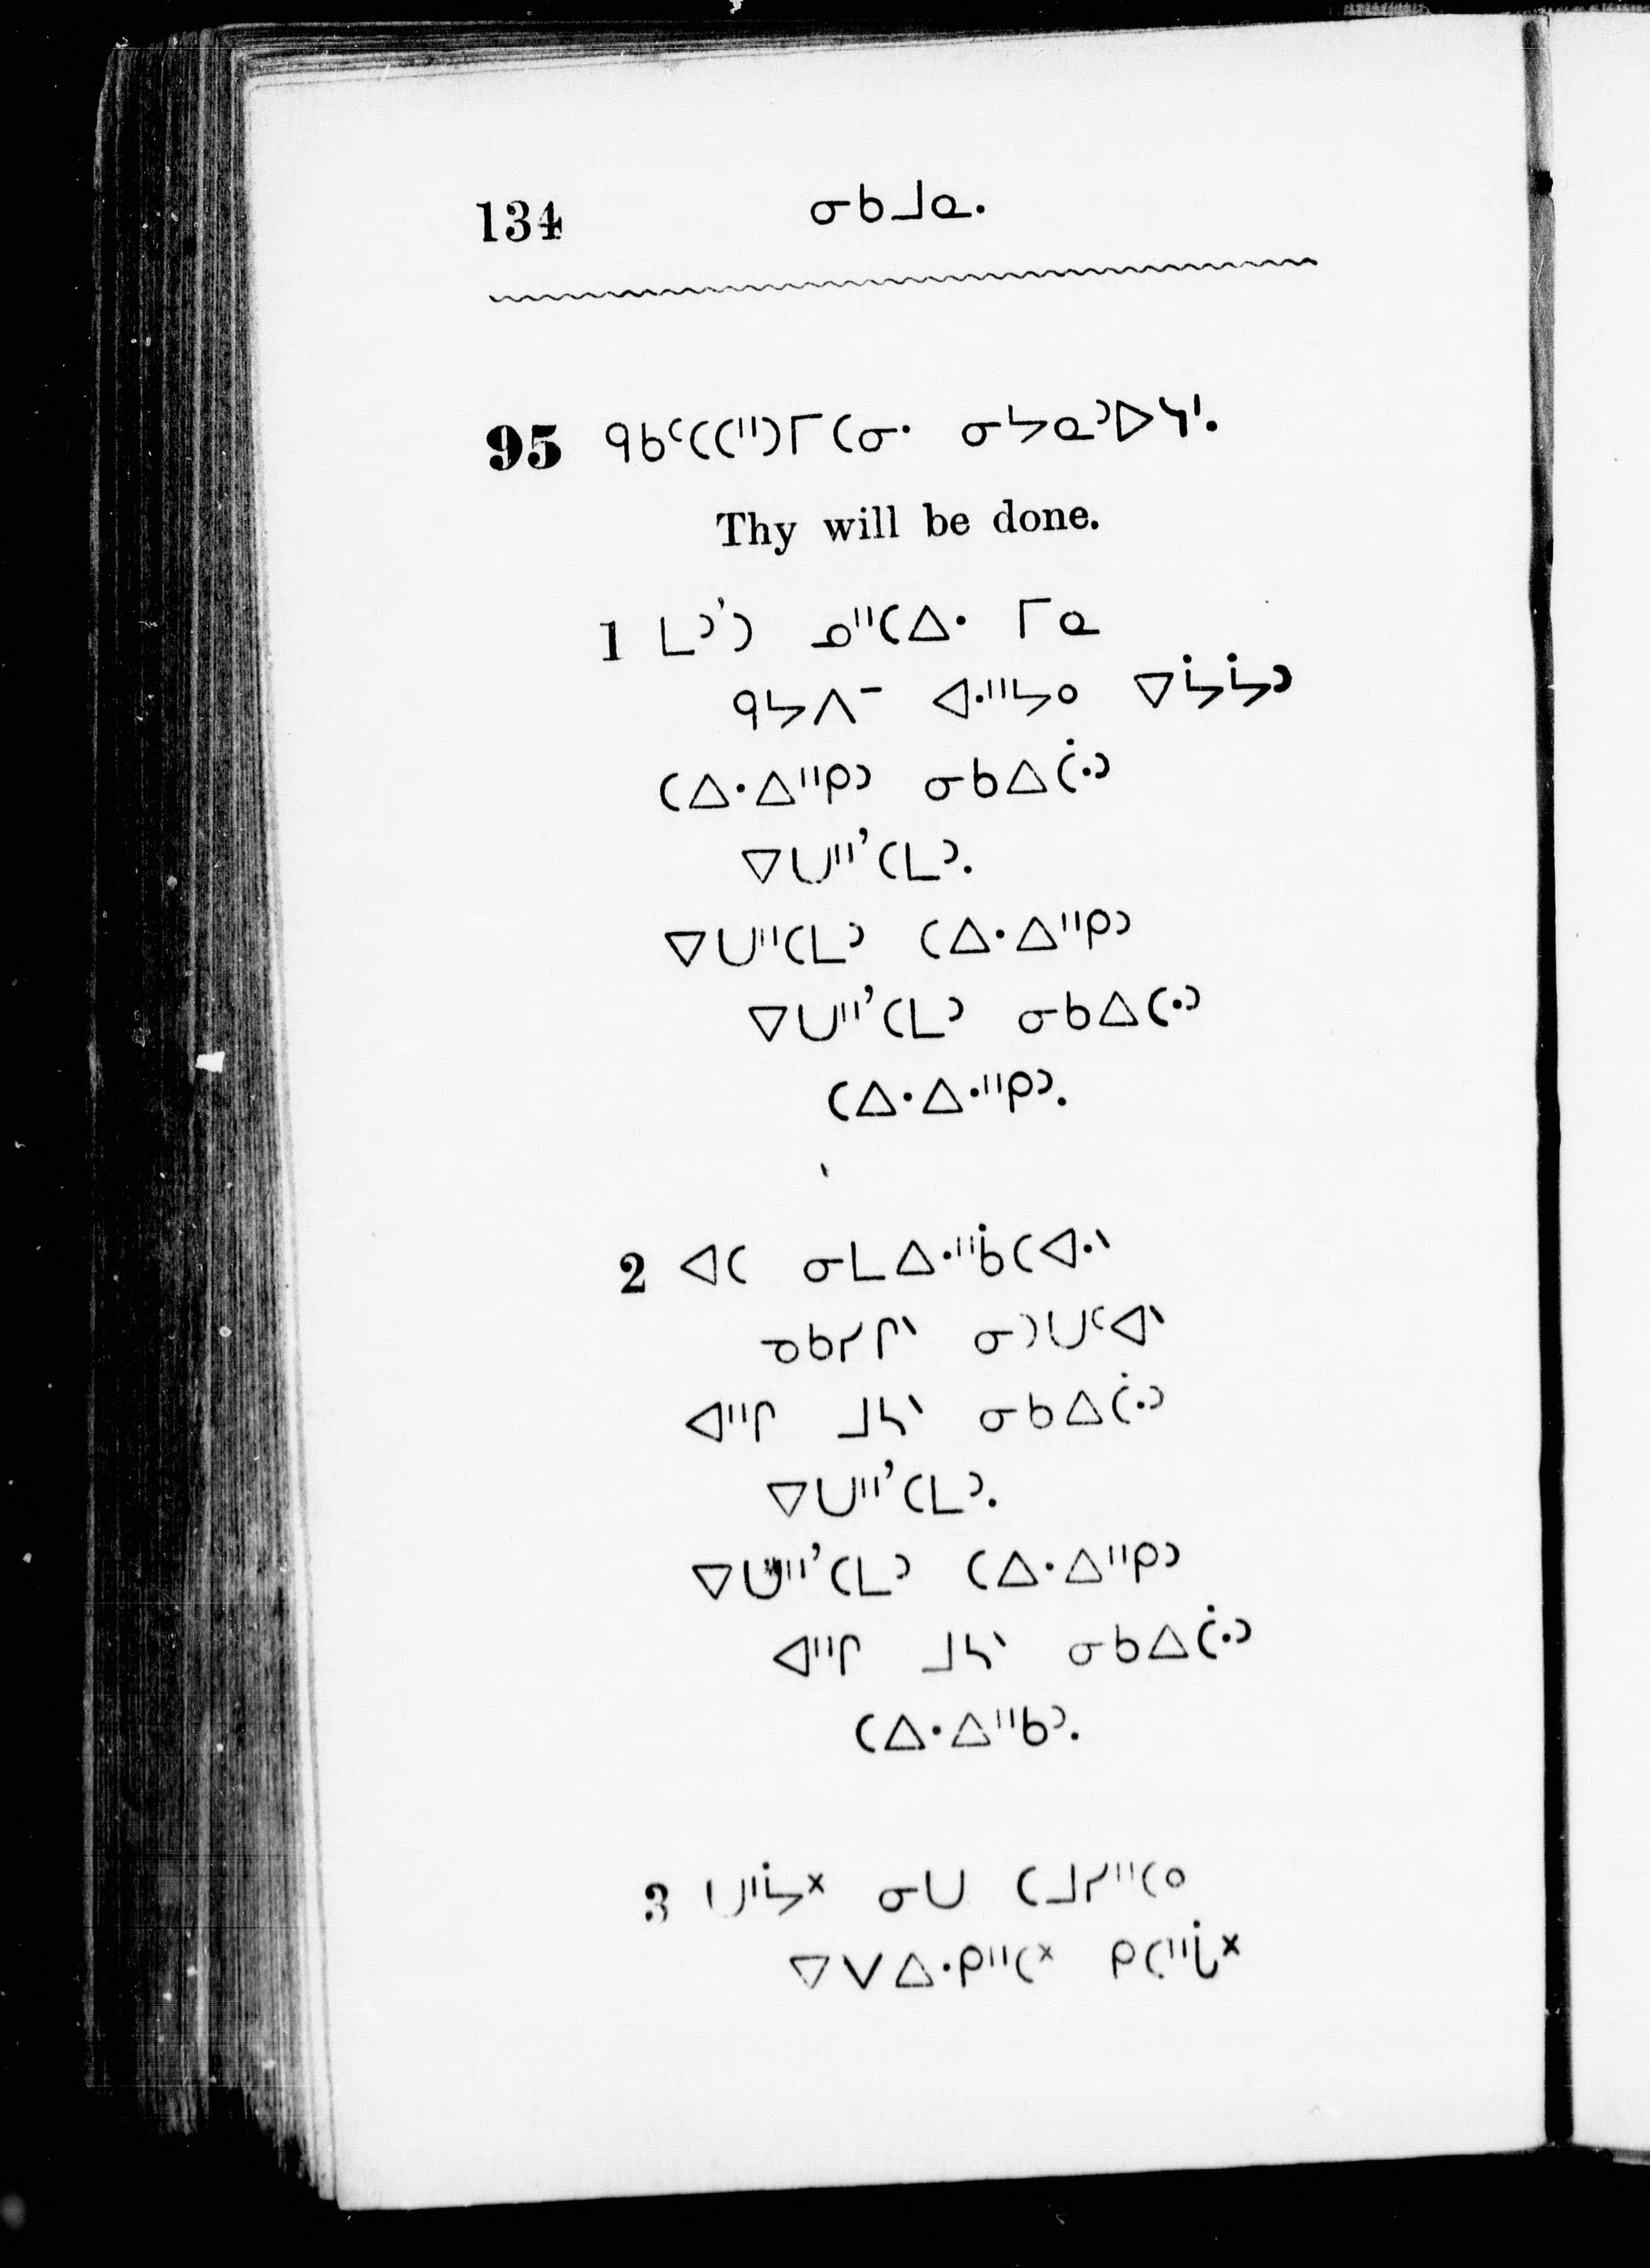 134 ᓂᑲᒧᓇ.
95 ᑫᑲᑦᑕᑕᐦᑐᒥᑕᓂᐧ ᓂᔭᓇᐣᐅᓴᑊ.
Thy will be done.
1 ᒪᐣᐟᑐ ᓄᐦᑕᐃᐧ ᒥᓇ
ᑫᔭᐱᐨ ᐊᐧᐦᔭᐤ ᐁᔮᔮᐣ
ᑕᐃᐧᐃᐦᑭᐣ ᓂᑲᐃᑖᐧᐣ
ᐁᑌᐦᐟᑕᒪᐣ.
ᐁᑌᐦᑕᒪᐣ ᑕᐃᐧᐃᐦᑭᐣ
ᐁᑌᐦᐟᑕᒪᐣ ᓂᑲᐃᑕᐧᐣ
ᑕᐃᐧᐃᐧᐦᑭᐣ.
2 ᐊᑕ ᓂᒪᐃᐧᐦᑳᑕᐊᐧᐠ
ᓀᑲᓯᒋᐠ ᓂᑐᑌᑦᐊᐠ
ᐊᐦᒋ ᒧᓴᐠ ᓂᑲᐃᑖᐧᐣ
ᐁᑌᐦᐟᑕᒪᐣ.
ᐁᑌᐦᐟᑕᒪᐣ ᑕᐃᐧᐃᐦᑭᐣ
ᐊᐦᒋ ᒧᓴᐠ ᓂᑲᐃᑖᐧᐣ
ᑕᐃᐧᐃᐦᑲᐣ.
3 ᑌᐦᔮᕽ ᓂᑌ ᑕᒧᓯᐦᑕᐤ
ᐁᐯᐃᐧᑭᐦᑕᕽ ᑭᑕᐦᒑᕽ